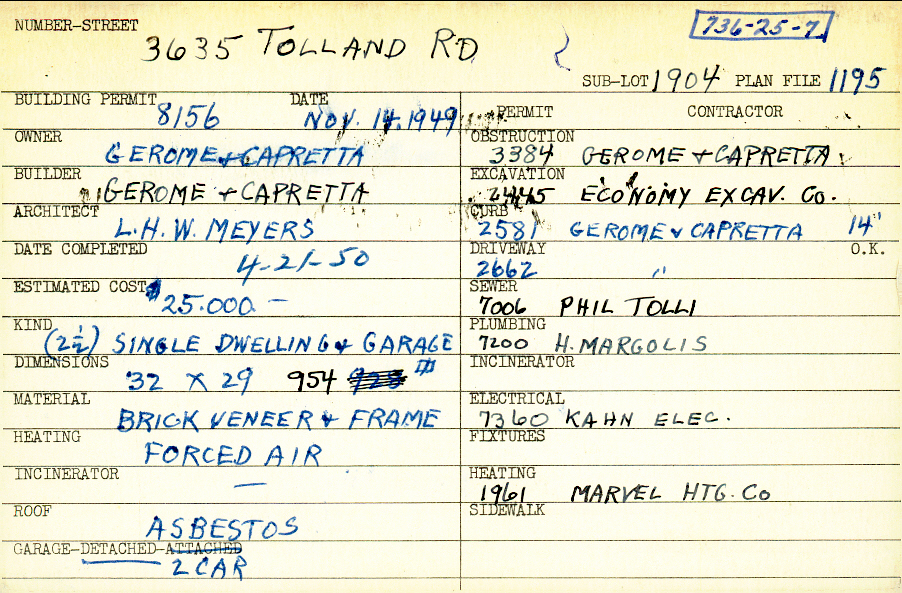 NUMBER-STREET 3635 TOLLAND RD
736-25-7
SUB-LOT 1904 PLAN FILE 1195
BUILDING PERMIT 8156 DATE NOV. 14. 1949
OWNER GEROME & CAPRETTA
BUILDER GEROME & CAPRETTA
ARCHITECT L.H.W. MEYERS
DATE COMPLETED 4-21-50
ESTIMATED COST $25.000.—
KIND (2½) SINGLE DWELLING & GARAGE
DIMENSIONS 32 X 29 954
MATERIAL BRICK VENEER & FRAME
HEATING FORCED AIR
INCINERATOR —
ROOF ASBESTOS
GARAGE-DETACHED-ATTACHED
2 CAR
PERMIT CONTRACTOR
OBSTRUCTION 3384 GEROME & CAPRETTA
EXCAVATION 2445 ECONOMY EXCAV. Co.
CURB 2581 GEROME & CAPRETTA 14"
DRIVEWAY 2662 " O.K.
SEWER 7006 PHIL TOLLI
PLUMBING 7200 H. MARGOLIS
INCINERATOR
ELECTRICAL 7360 KAHN ELEC.
FIXTURES
HEATING 1961 MARVEL HTG. Co
SIDEWALK